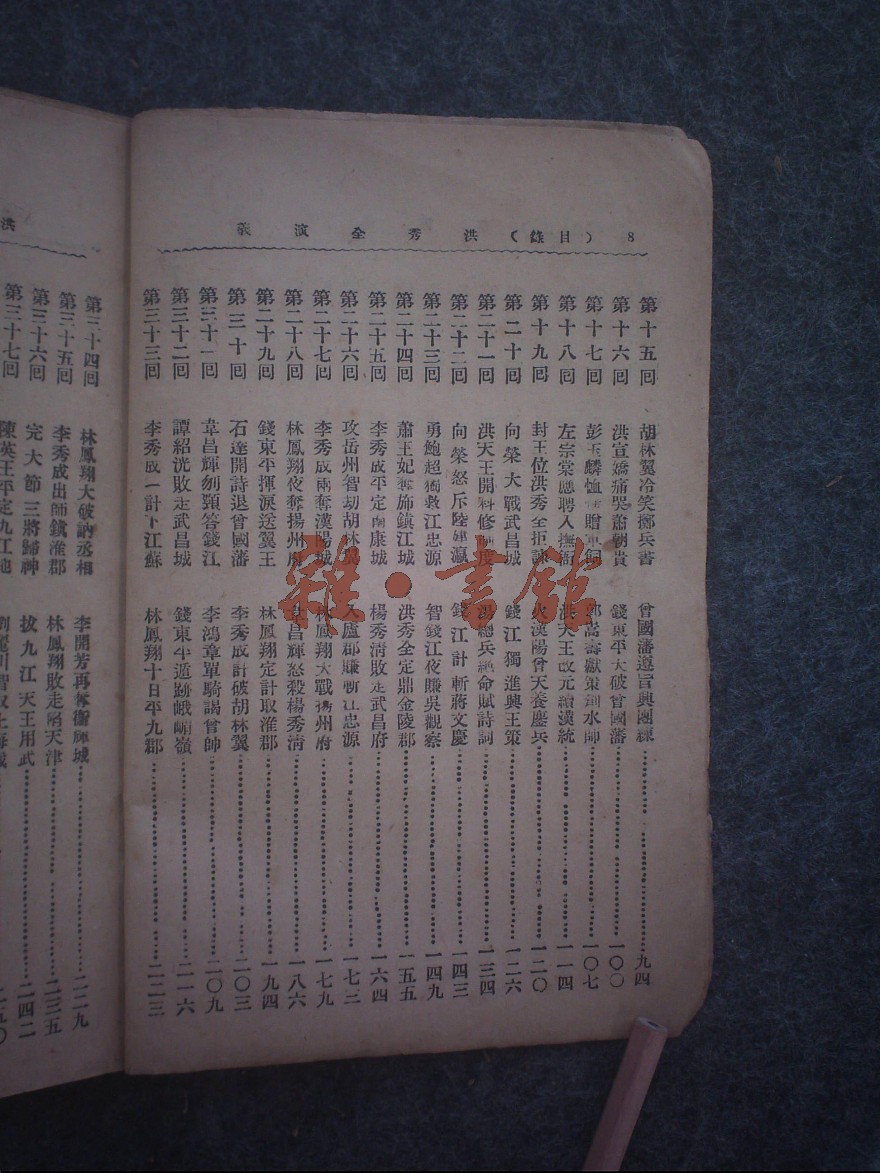 8　（目錄）洪秀全演義
第十五回　胡林翼冷笑擲兵書　曾國藩遵旨興團練　九四
第十六回　洪宣嬌痛哭蕭朝貴　錢東平大破曾國藩　一〇〇
第十七回　彭玉麟恤　贈軍餉　郭嵩燾獻策創水師　一〇七
第十八回　左宗棠應聘入撫衙　洪天王改元續漢統　一一四
第十九回　封王位洪秀全拒諫　火漢陽曾天養鏖兵　一二〇
第二十回　向榮大戰武昌城　錢江獨進興王策　一二六
第二十一回　洪天王開科修制度　湯總兵絕命賦詩詞　一三四
第二十二回　向榮怒斥陸建瀛　錢江計斬蔣文慶　一四三
第二十三回　勇鮑超獨救江忠源　智錢江夜賺吳觀察　一四九
第二十四回　蕭王妃奪旆鎮江城　洪秀全定鼎金陵郡　一五五
第二十五回　李秀成平定南康城　楊秀清敗走武昌府　一六四
第二十六回　攻岳州智劫胡林翼　入廬郡賺斬江忠源　一七三
第二十七回　李秀成兩奪漢陽城　林鳳翔大戰揚州府　一七九
第二十八回　林鳳翔夜奪揚州府　韋昌輝怒殺楊秀清　一八六
第二十九回　錢東平揮淚送翼王　林鳳翔定計取淮郡　一九四
第三十回　石達開詩退曾國藩　李秀成計破胡林翼　二〇三
第三十一回　韋昌輝刎頸答錢江　李鴻章單騎謁曾帥　二〇九
第三十二回　譚紹洸敗走武昌城　錢東平遁跡峨嵋嶺　二一六
第三十三回　李秀成一計下江蘇　林鳳翔十日平九郡　二二三
洪
第三十四回　林鳳翔大破訥丞相　李開芳再奪衞輝城　二二九
第三十五回　李秀成出師鎮淮郡　林鳳翔敗走陷天津　二三五
第三十六回　完大節三將歸神　拔九江天王用武　二四二
第三十七回　陳英王平定九江地　劉麗川智取上海城　二五〇
雜·書館